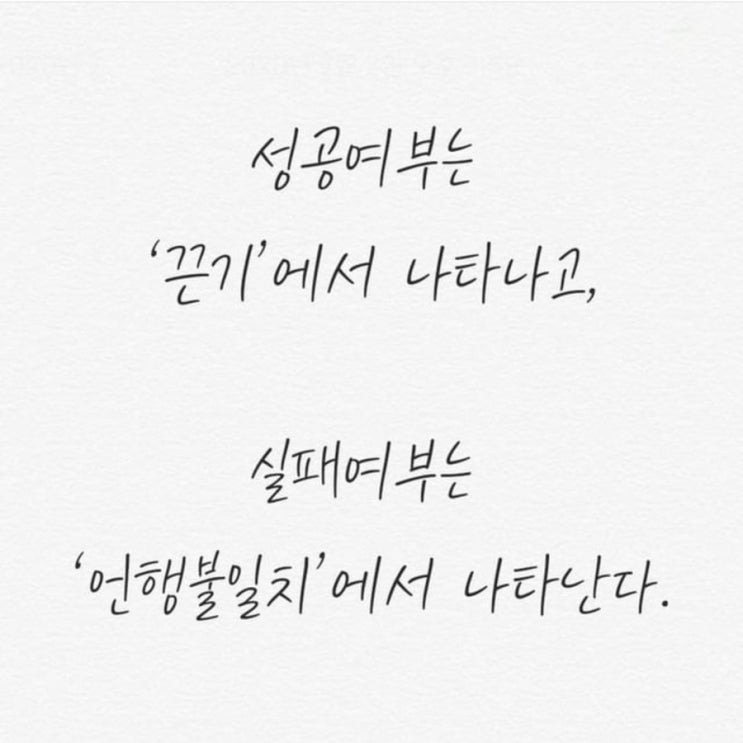 성공여부는
‘끈기’에서 나타나고,
실패여부는
‘언행불일치’에서 나타난다.